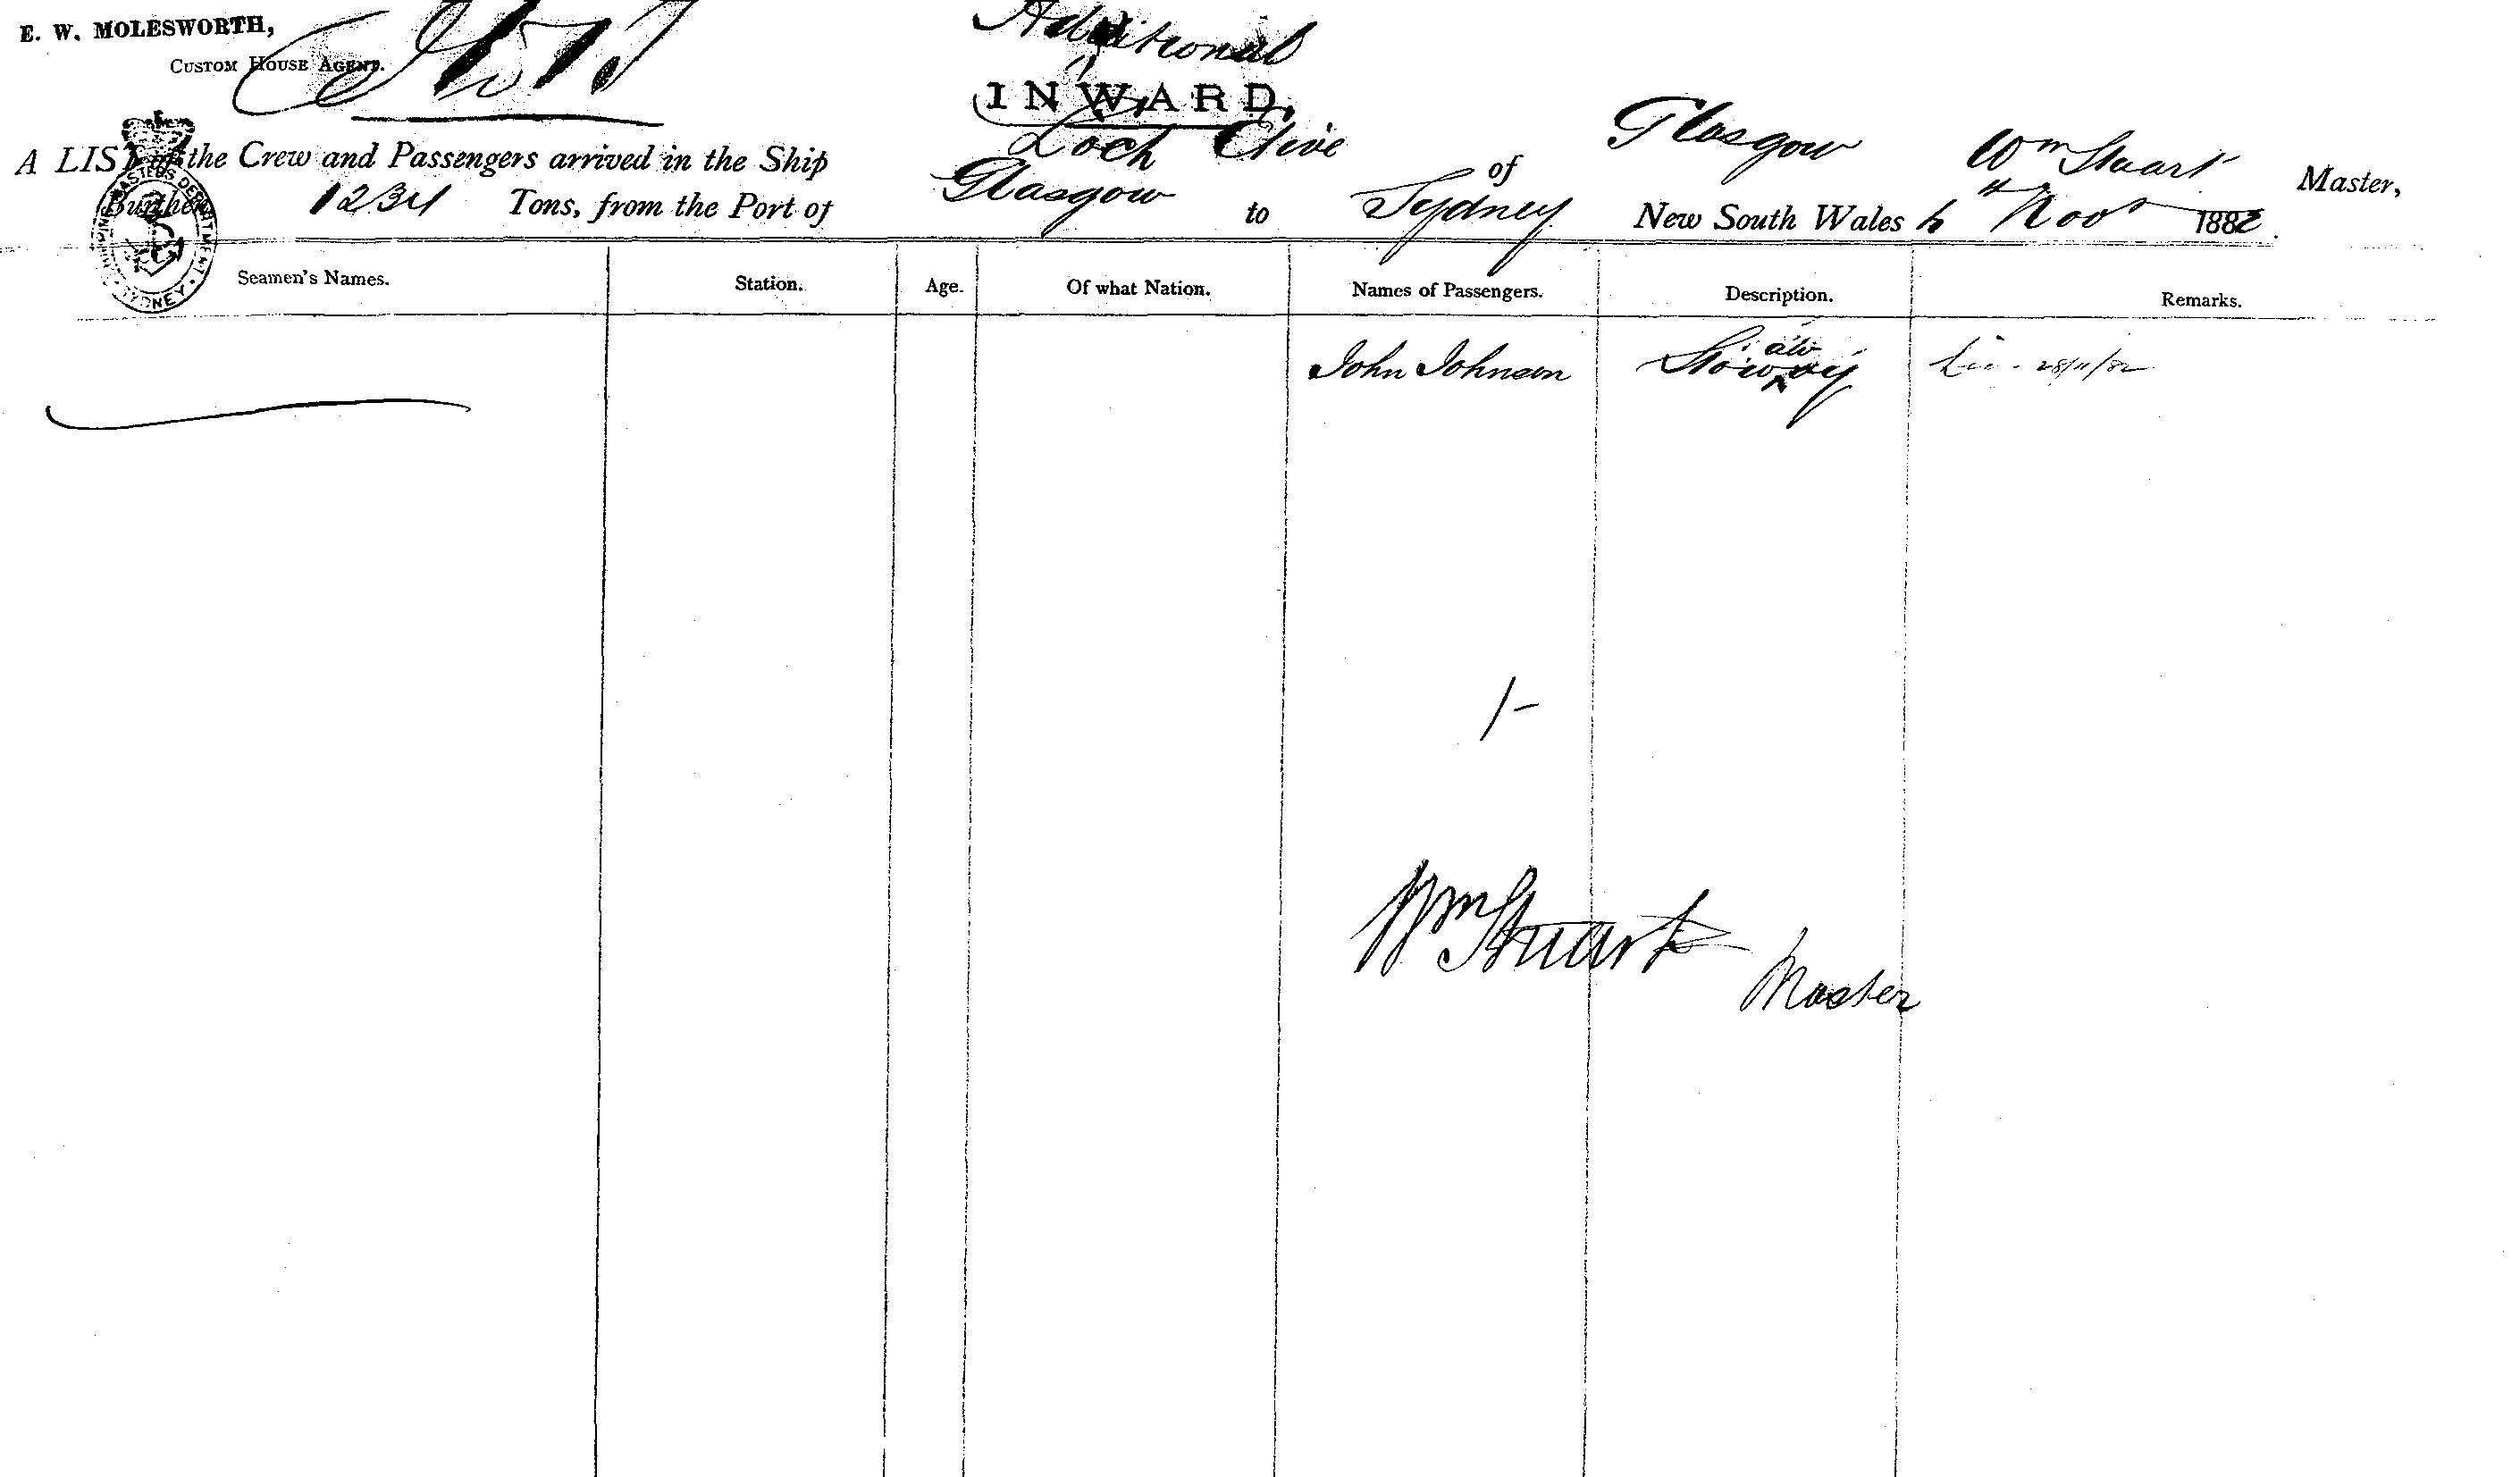 E. W. MOLESWORTH,
CUSTOM HOUSE AGENT.
Additional
INWARD.
A LIST of the Crew and Passengers arrived in the Ship Loch Etive of Glasgow Wm Stuart Master,
Burthen 1234 Tons, from the Port of Glasgow to Sydney New South Wales Novr 1882
SHIPPING MASTERS DEPARTMENT SYDNEY
Seamen's Names. Station. Age. Of what Nation. Names of Passengers. Description. Remarks.
John Johnson Stowaway 28/11/82
1-
Wm Stuart
Master